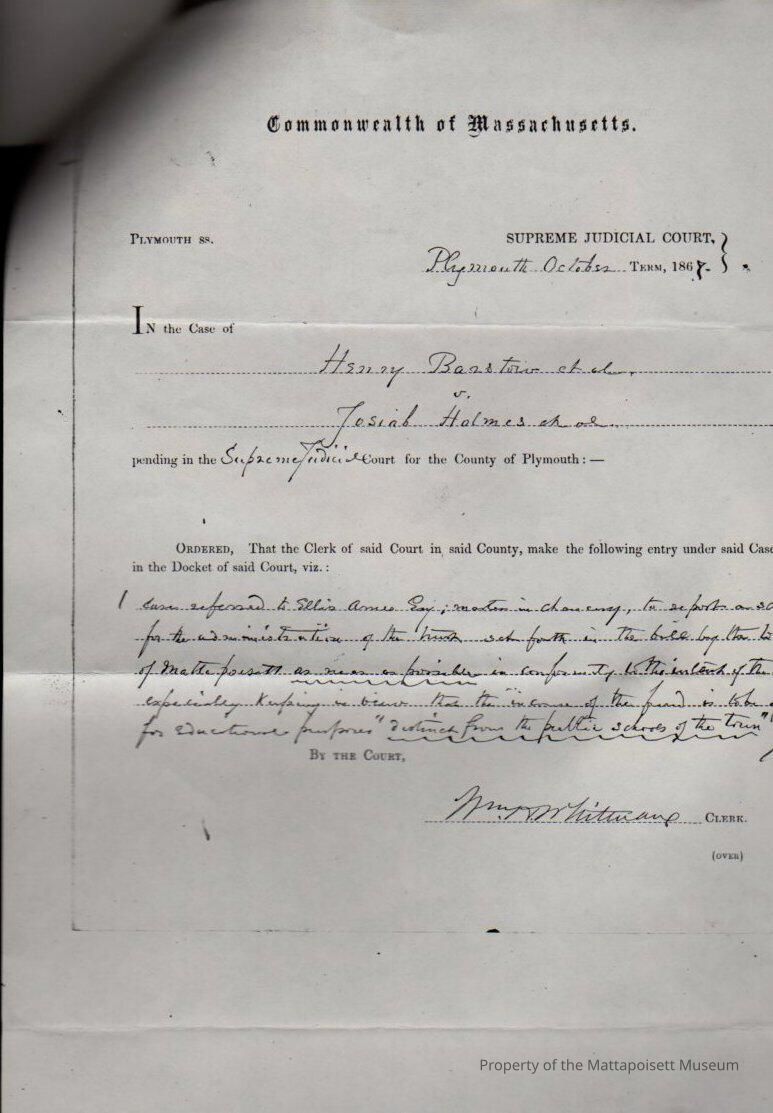 Commonwealth of Massachusetts.
PLYMOUTH SS.
SUPREME JUDICIAL COURT,
Plymouth October TERM, 1867.
IN the Case of
Henry Barstow et al.
v.
Josiah Holmes et al.
pending in the Supreme Judicial Court for the County of Plymouth :—
ORDERED, That the Clerk of said Court in said County, make the following entry under said Case
in the Docket of said Court, viz. :
case referred to Ellis Ames Esq; master in chancery, to report a
for the administration of the trust set forth in the bill by the
of Mattapoisett as near as possible in conformity to the intent of the
especially keeping in view that the income of the fund is to be
for educational purposes "distinct from the public schools of the town"
BY THE COURT,
Wm. H. Whitman CLERK.
(OVER)
Property of the Mattapoisett Museum